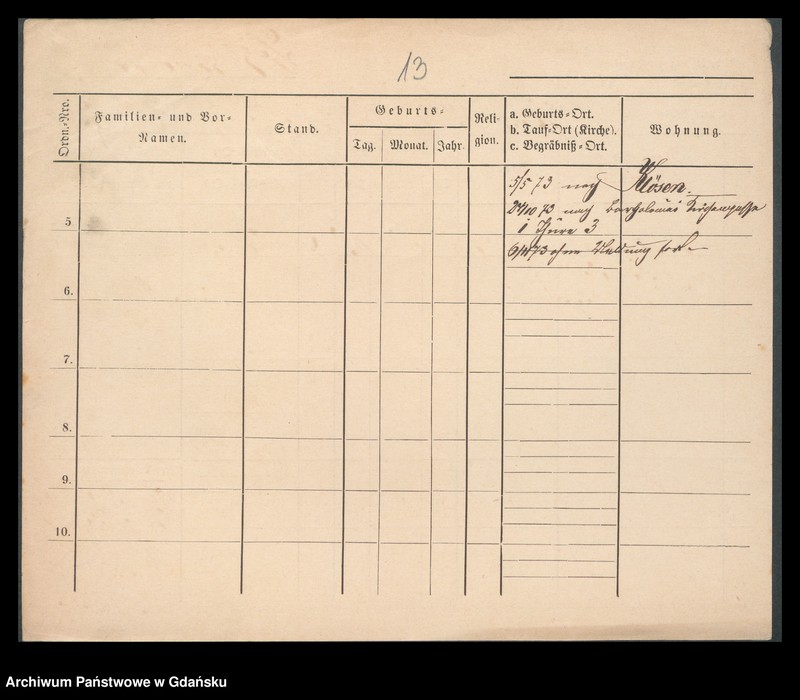 13
Ordn.-Nro.
Familien- und Vor-
Namen.
Stand.
Geburts-
Tag.
Monat.
Jahr.
Reli-
gion.
a. Geburts-Ort.
b. Tauf-Ort (Kirche).
c. Begräbniß-Ort.
Wohnung.
5/5 73 nach Klösen.
24/10 73 nach Bartholomäi Kirchengasse
5
3
73 ohne Meldung fort
6.
7.
8.
9.
10.
Archiwum Państwowe w Gdańsku